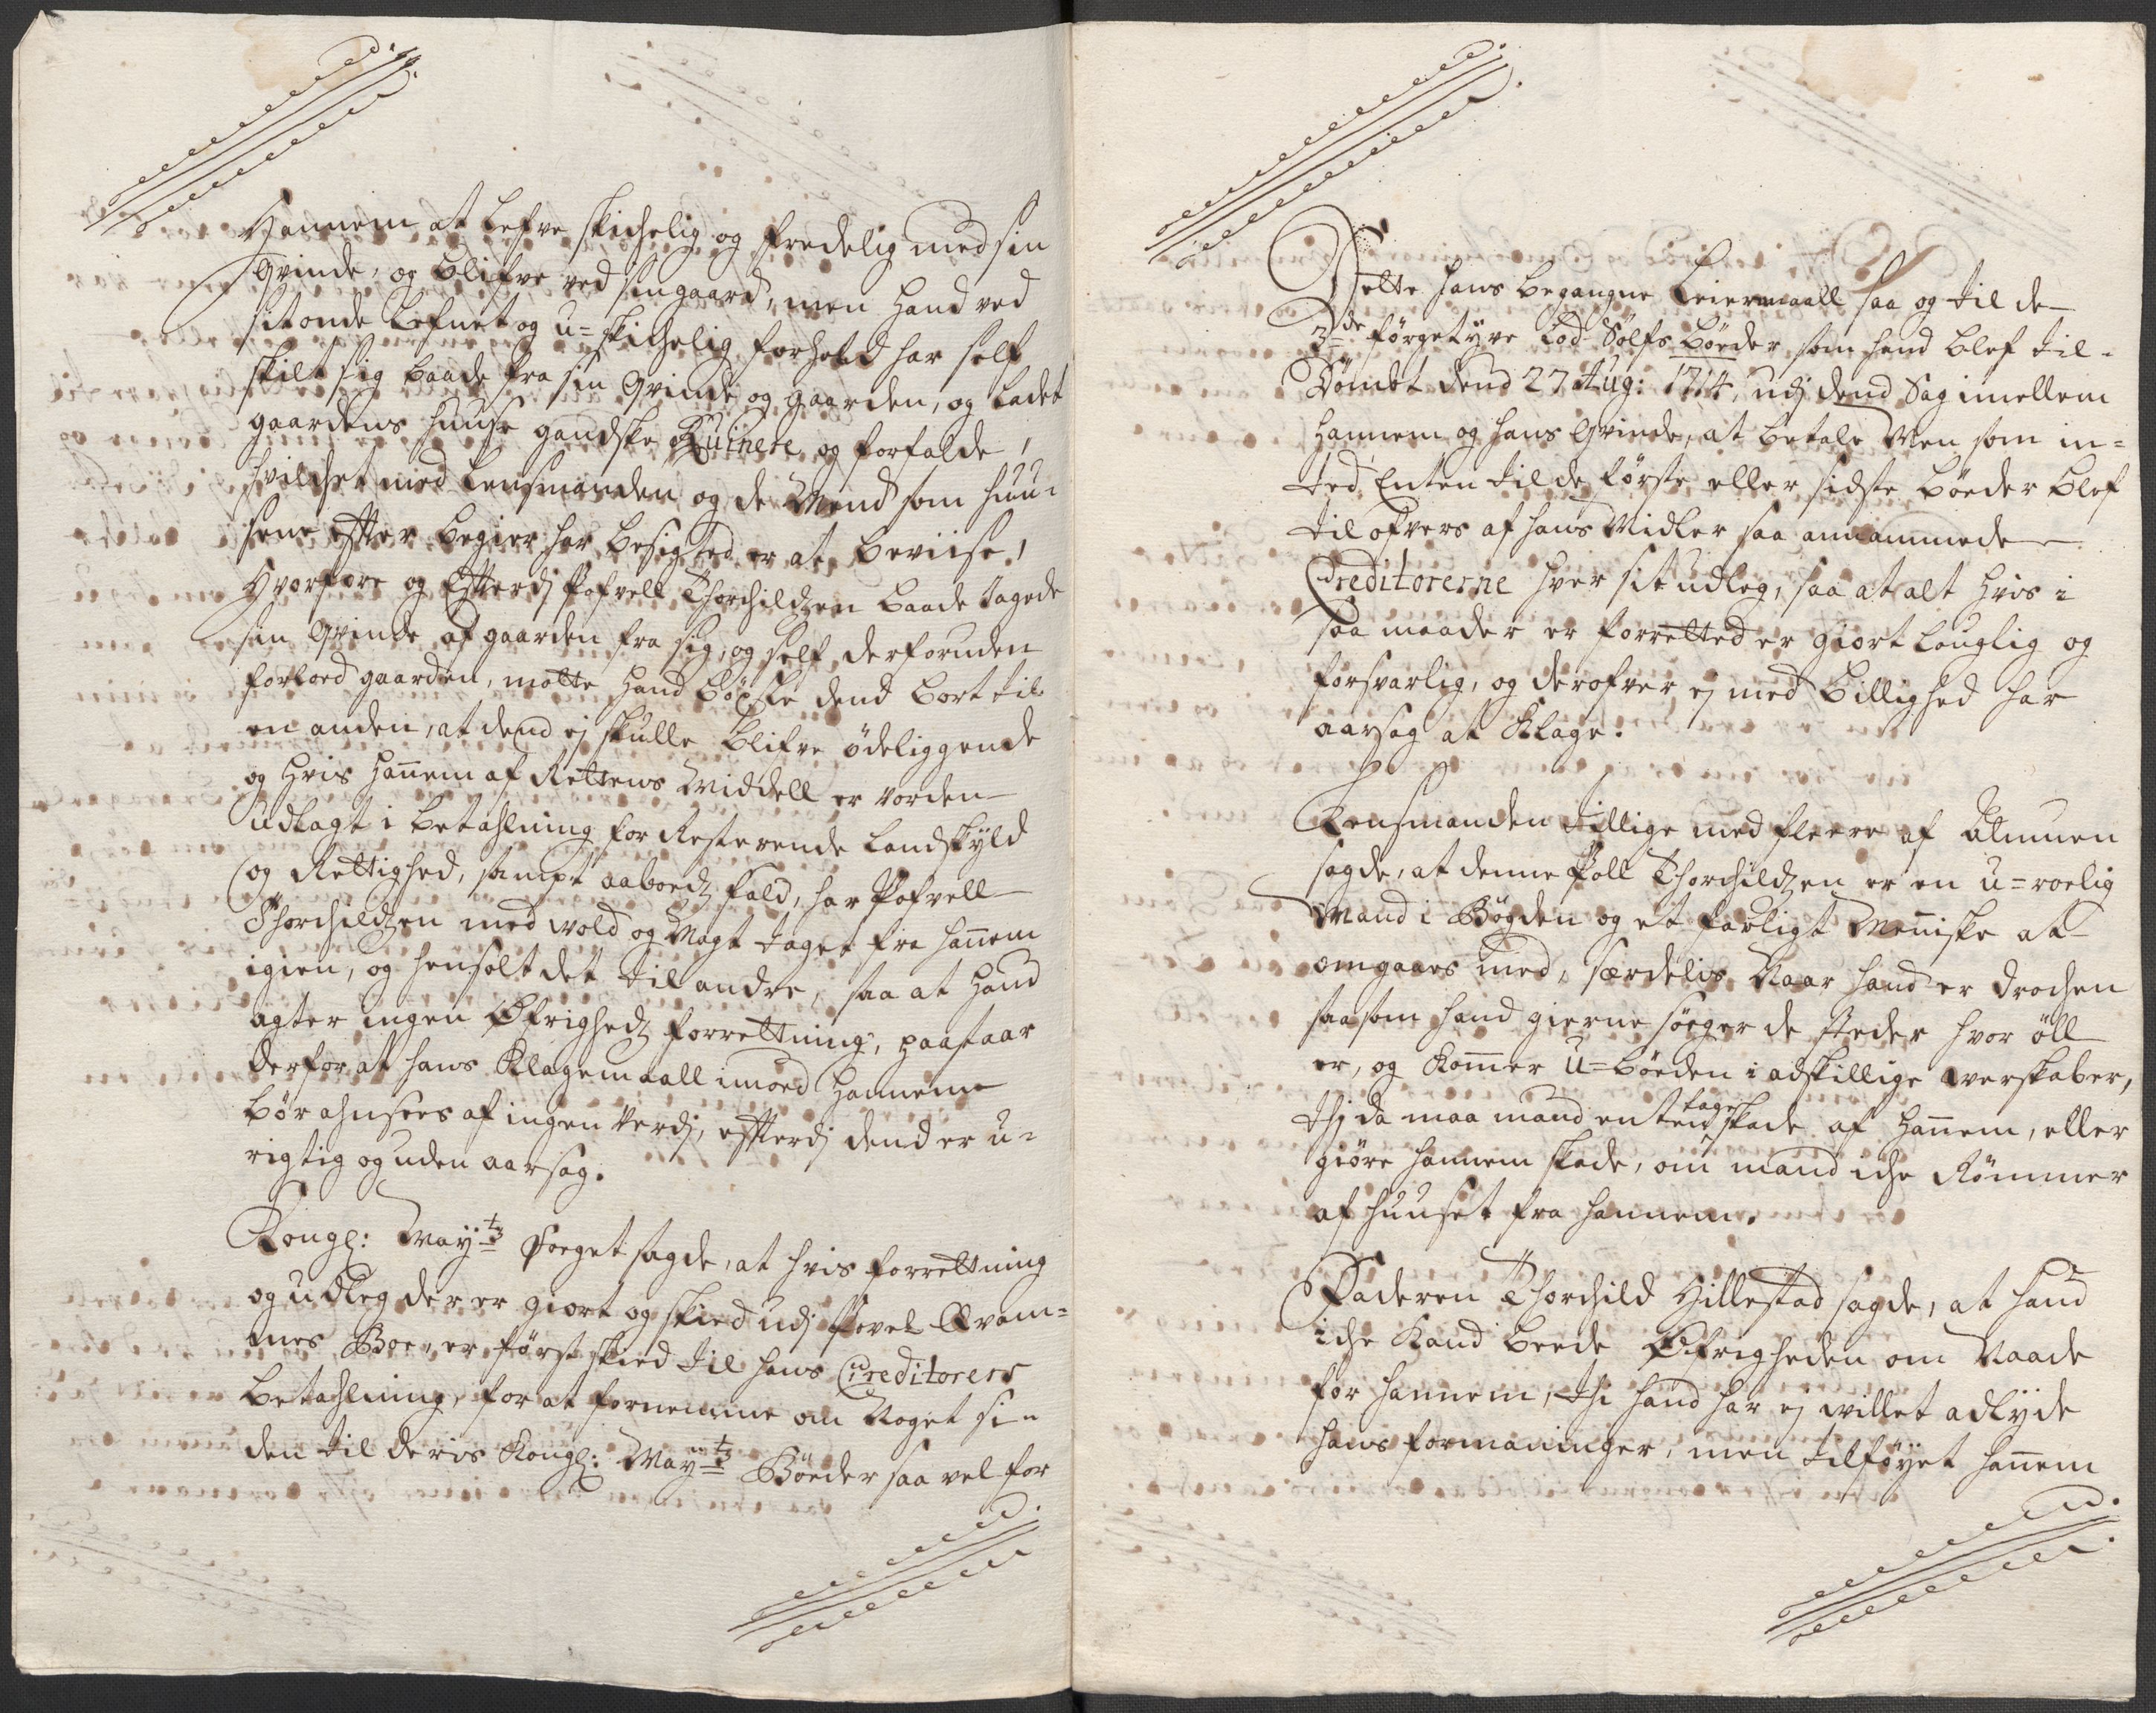 Hannem at lefve skichelig og fredelig med sin
Qvinde, og blifve ved sin gaard, men hand ved
sit onde lefnet og u=skichelig forhold har self
skilt sig baade fra sin Qvinde og gaarden, og ladet
gaardens huuse gandske Ruinere og forfalde,
hvilchet med Lensmanden og de Mend som huu-
sene effter begier har besigted er at beviise,
Hvorfore og Efterdj Pofvell Thorchildsen baade jagede
sin Qvinde af gaarden fra sig, og self derforuden
forloed gaarden, motte hand böxle dend bort til
en anden, at dend ej skulle blifve ödeliggende
og hvis hannem af Rettens Middell er vorden
udlagt i betahlning for Resterende Landskyld
og Rettighed, sampt aaboeds fald, har Pofvell
Thorchildsen med vold og Magt taget fra hannem
igien, og hensolt det til andre, saa at hand
agter ingen Øfrigheds forrettning, paastaar
derfor at hans Klagemaall imoed Hannem
bör ahnsees af ingen verdj, effterdj dend er u-
rigtig og uden aarsag.
Kongl: May.tz Foeget sagde, at hvis forrettning
og udleg der er giort og skied udj Povel Qvam-
mes Boe, er först skied til hans Creditorers
betahlning, for at fornemme om Noget si-
den til deris Kongl: May.tz Böeder saa vel for
Dette hans begangne Leiermaall saa og til de
3de förgetyve Lod Sölfs böeder som hand blef til-
Dömbt dend 27 Aug: 1714, udj dend Sag imellem
Hannem og hans Qvinde, at betale Men som in-
ted Enten til de förste eller sidste böeder blef
til ofvers af hans Midler saa annammede
Creditorerne hver sit udleg, saa at alt hvis i
saa maader er forretted er giort louglig og
forsvarlig, og derofver ej med billighed har
aarsag at Klage.
Lensmanden tillige med fleere af Almuen
sagde, at denne Poll Thorchildsen er en u=roelig
Mand i Bögden og et farligt Menniske at
omgaaes med, særdelis Naar hand er drochen
saasom hand gierne söeger de steder hvor öll
er, og Kommer U=böeden i adskillige verskaber,
thj da maa mand enten tage skade af hannem, eller
giöre hannem skade, om mand iche Römmer
af huuset fra hannem.
Faderen Thorchild Hillestad sagde, at hand
iche Kand beede Øfrigheden om Naade
for hannem, thi hand har ej villet adlyde
hans formaninger, men tilföyet hannem